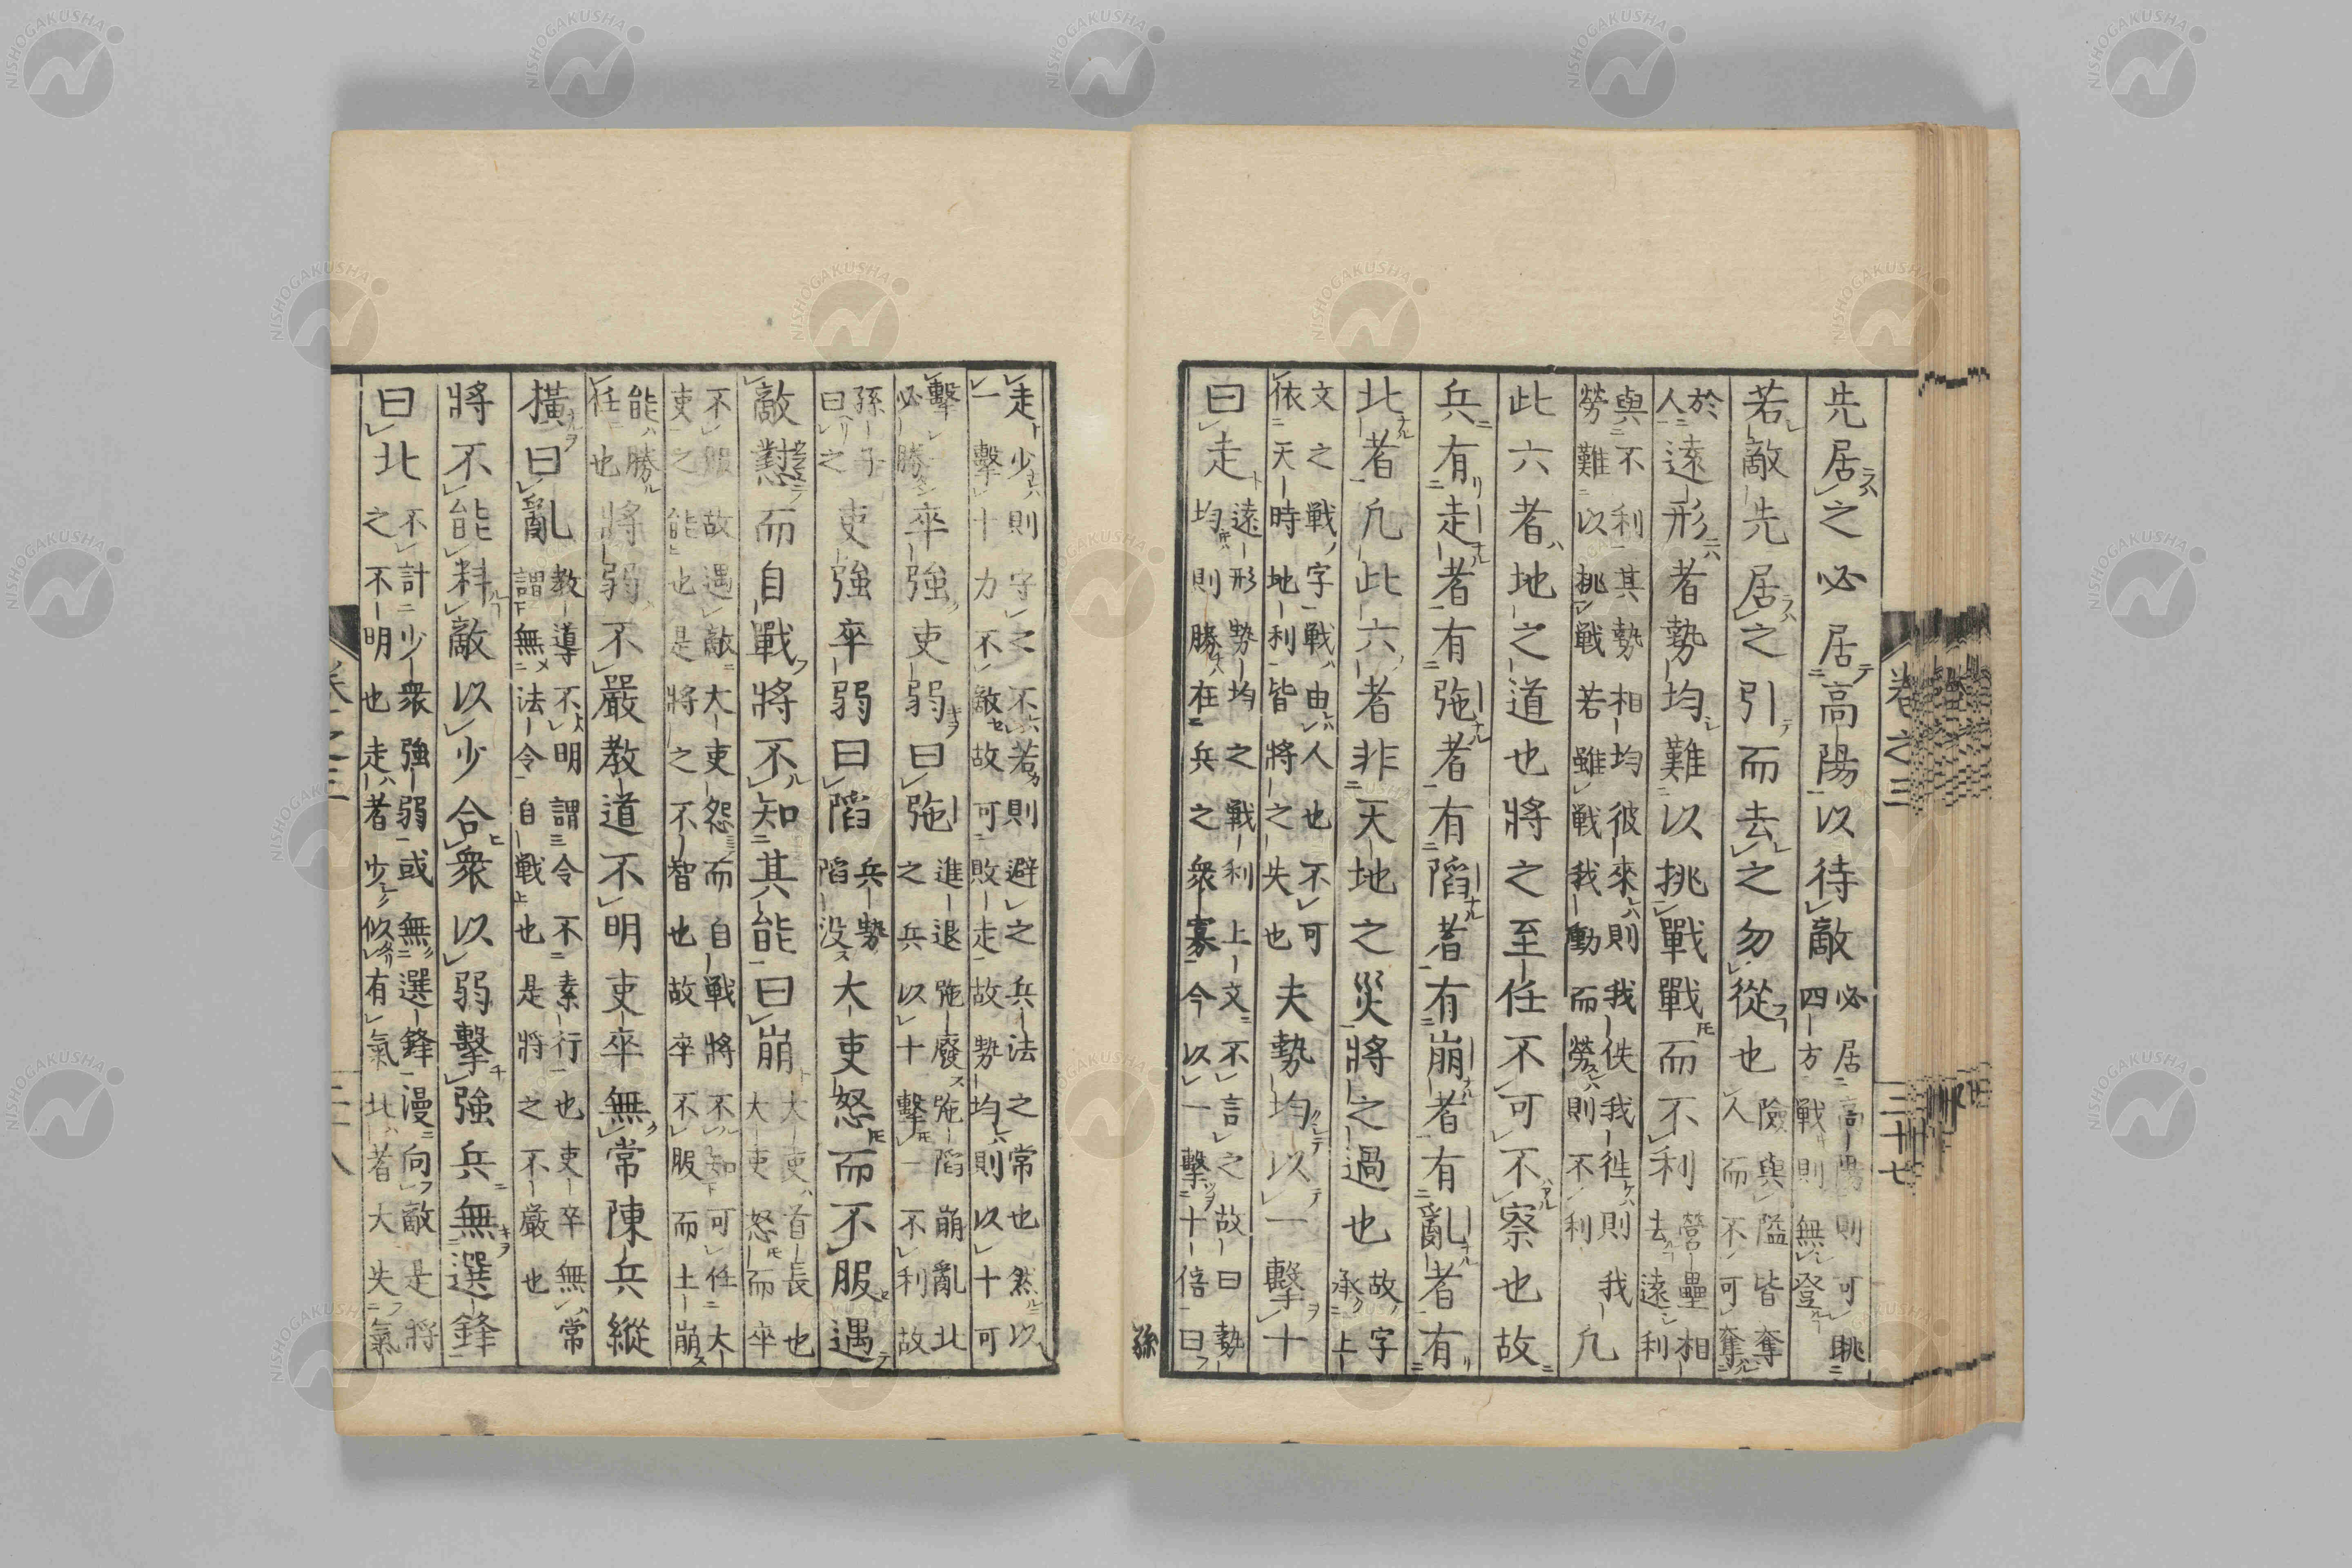 卷之三
三十七
先居之必居高陽以待敵
必居高陽則可眺
四方戰則無登
若敵先居之引而去之勿從也
險與隘皆奪
人而不可奪
於
人
遠形者勢均難以挑戰戰而不利
營壘相
去遠利
與不利其勢相均彼來則我佚我往則我
勞難以挑戰若雖戰我動而勞則不利
凡
此六者地之道也將之至任不可不察也故
兵有走者有弛者有陷者有崩者有亂者有
北者凡此六者非天地之災將之過也
故字
承上
文之戰字戰由人也不可
依天時地利皆將之失也
夫勢均以一擊十
曰走
遠形勢均之戰利上文不言之故曰勢
均則勝在兵之衆寡今以一擊十倍曰
孫
走少則守之不若則避之兵法之常也然以
一擊十力不敵故可敗走故勢均則以十可
擊
必勝
卒強吏弱曰弛
進退弛廢弛陷崩亂北
之兵以十擊一不利故
孫子
曰之
吏強卒弱曰陷
兵勢
陷没
大吏怒而不服遇
敵懟而自戰將不知其能曰崩
大吏首長也
大吏怒而卒
不服故遇敵大吏怨而自戰將不知可任大
吏之能也是將之不智也故卒不服而士崩
能勝
任也
將弱不嚴教道不明吏卒無常陳兵縱
橫曰亂
教導不明謂令不素行也吏卒無常
謂無法令自戰也是將之不嚴也
將不能料敵以少合衆以弱擊強兵無選鋒
曰北
不計少衆強弱或無選鋒漫向敵是將
之不明也走者少似有氣北者大失氣
NISHOGAKUSHA